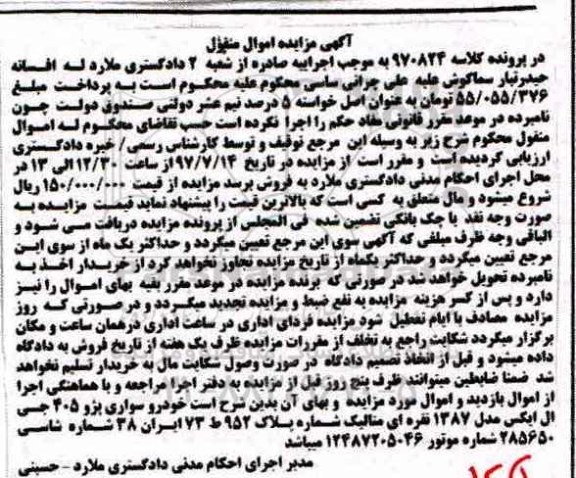 آگهی مزایده اموال منقول
در پرونده کلاسه ۹۷۰۸۲۴ به موجب اجراییه صادره از شعبه ۲ دادگستری ملارد له افسانه
حیدرتبار سماگوش علیه علی چراتی ساسی محکوم علیه محکوم است به پرداخت مبلغ
۵۵/۰۵۵/۳۷۶ تومان به عنوان اصل خواسته ۵ درصد نیم عشر دولتی صندوق دولت چون
نامبرده در موعد مقرر قانونی مفاد حکم را اجرا نکرده است حسب تقاضای محکوم له اموال
منقول محکوم شرح زیر به وسیله این مرجع توقیف و توسط کارشناس رسمی/ خبره دادگستری
ارزیابی گردیده است و مقرر است از مزایده در تاریخ ۹۷/۷/۱۴ از ساعت ۱۲/۳۰ الی ۱۳ در
محل اجرای احکام مدنی دادگستری ملارد به فروش برسد مزایده از قیمت ۱۵۰/۰۰۰/۰۰۰ ریال
شروع میشود و مال متعلق به کسی است که بالاترین قیمت را پیشنهاد نماید قیمت مزایده به
صورت وجه نقد یا چک بانکی تضمین شده فی المجلس از پرونده مزایده دریافت می شود و
الباقی وجه ظرف مبلغی که آگهی سوی این مرجع تعیین میگردد و حداکثر یک ماه از سوی این
مرجع تعیین میگردد و حداکثر یکماه از تاریخ مزایده تجاوز نخواهد کرد از خریدار اخذ به
نامبرده تحویل خواهد شد در صورتی که برنده مزایده در موعد مقرر بقیه بهای اموال را نیز
دارد و پس از کسر هزینه مزایده به نفع ضبط و مزایده تجدید میگردد و در صورتی که روز
مزایده مصادف با ایام تعطیل شود مزایده فردای اداری در ساعت اداری درهمان ساعت و مکان
برگزار میگردد شکایت راجع به تخلف از مقررات مزایده ظرف یک هفته از تاریخ فروش به دادگاه
داده میشود و قبل از اتخاذ تصمیم دادگاه در صورت وصول شکایت مال به خریدار تسلیم نخواهد
شد ضمنا ضابطین میتوانند ظرف پنج روز قبل از مزایده به دفتر اجرا مراجعه و با هماهنگی اجرا
از اموال بازدید و اموال مورد مزایده و بهای آن بدین شرح است خودرو سواری پژو ۴۰۵ جی
ال ایکس مدل ۱۳۸۷ نقره ای متالیک شماره پلاک ۹۵۲ ط ۷۳ ایران ۳۸ شماره شاسی
۲۸۵۶۵۰ شماره موتور ۱۲۴۸۷۲۰۵۰۴۶ میباشد
مدیر اجرای احکام مدنی دادگستری ملارد - حسینی